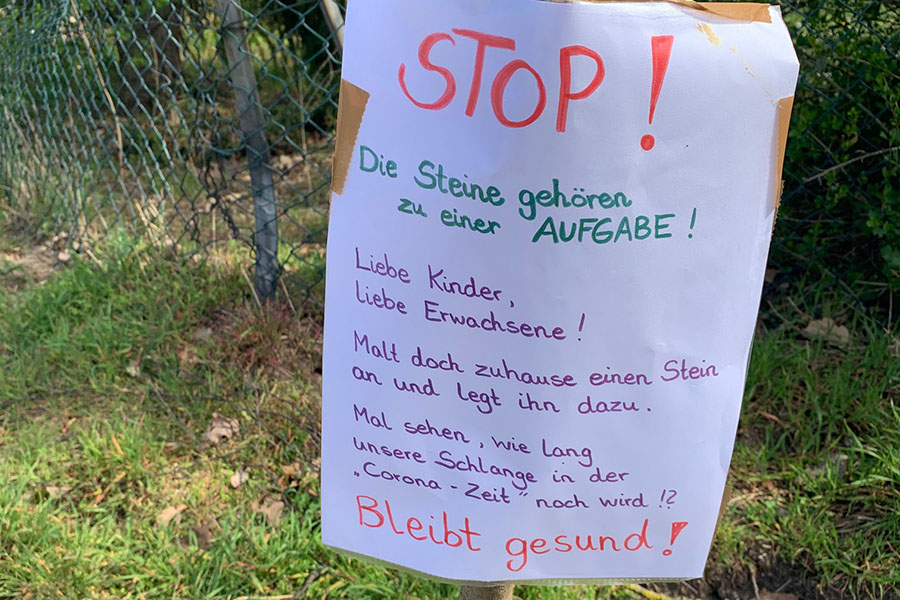 STOP!
Die Steine gehören
zu einer AUFGABE!
Liebe Kinder,
liebe Erwachsene!
Malt doch zuhause einen Stein
an und legt ihn dazu.
Mal sehen, wie lang
unsere Schlange in der
„Corona-Zeit" noch wird!?
Bleibt gesund!